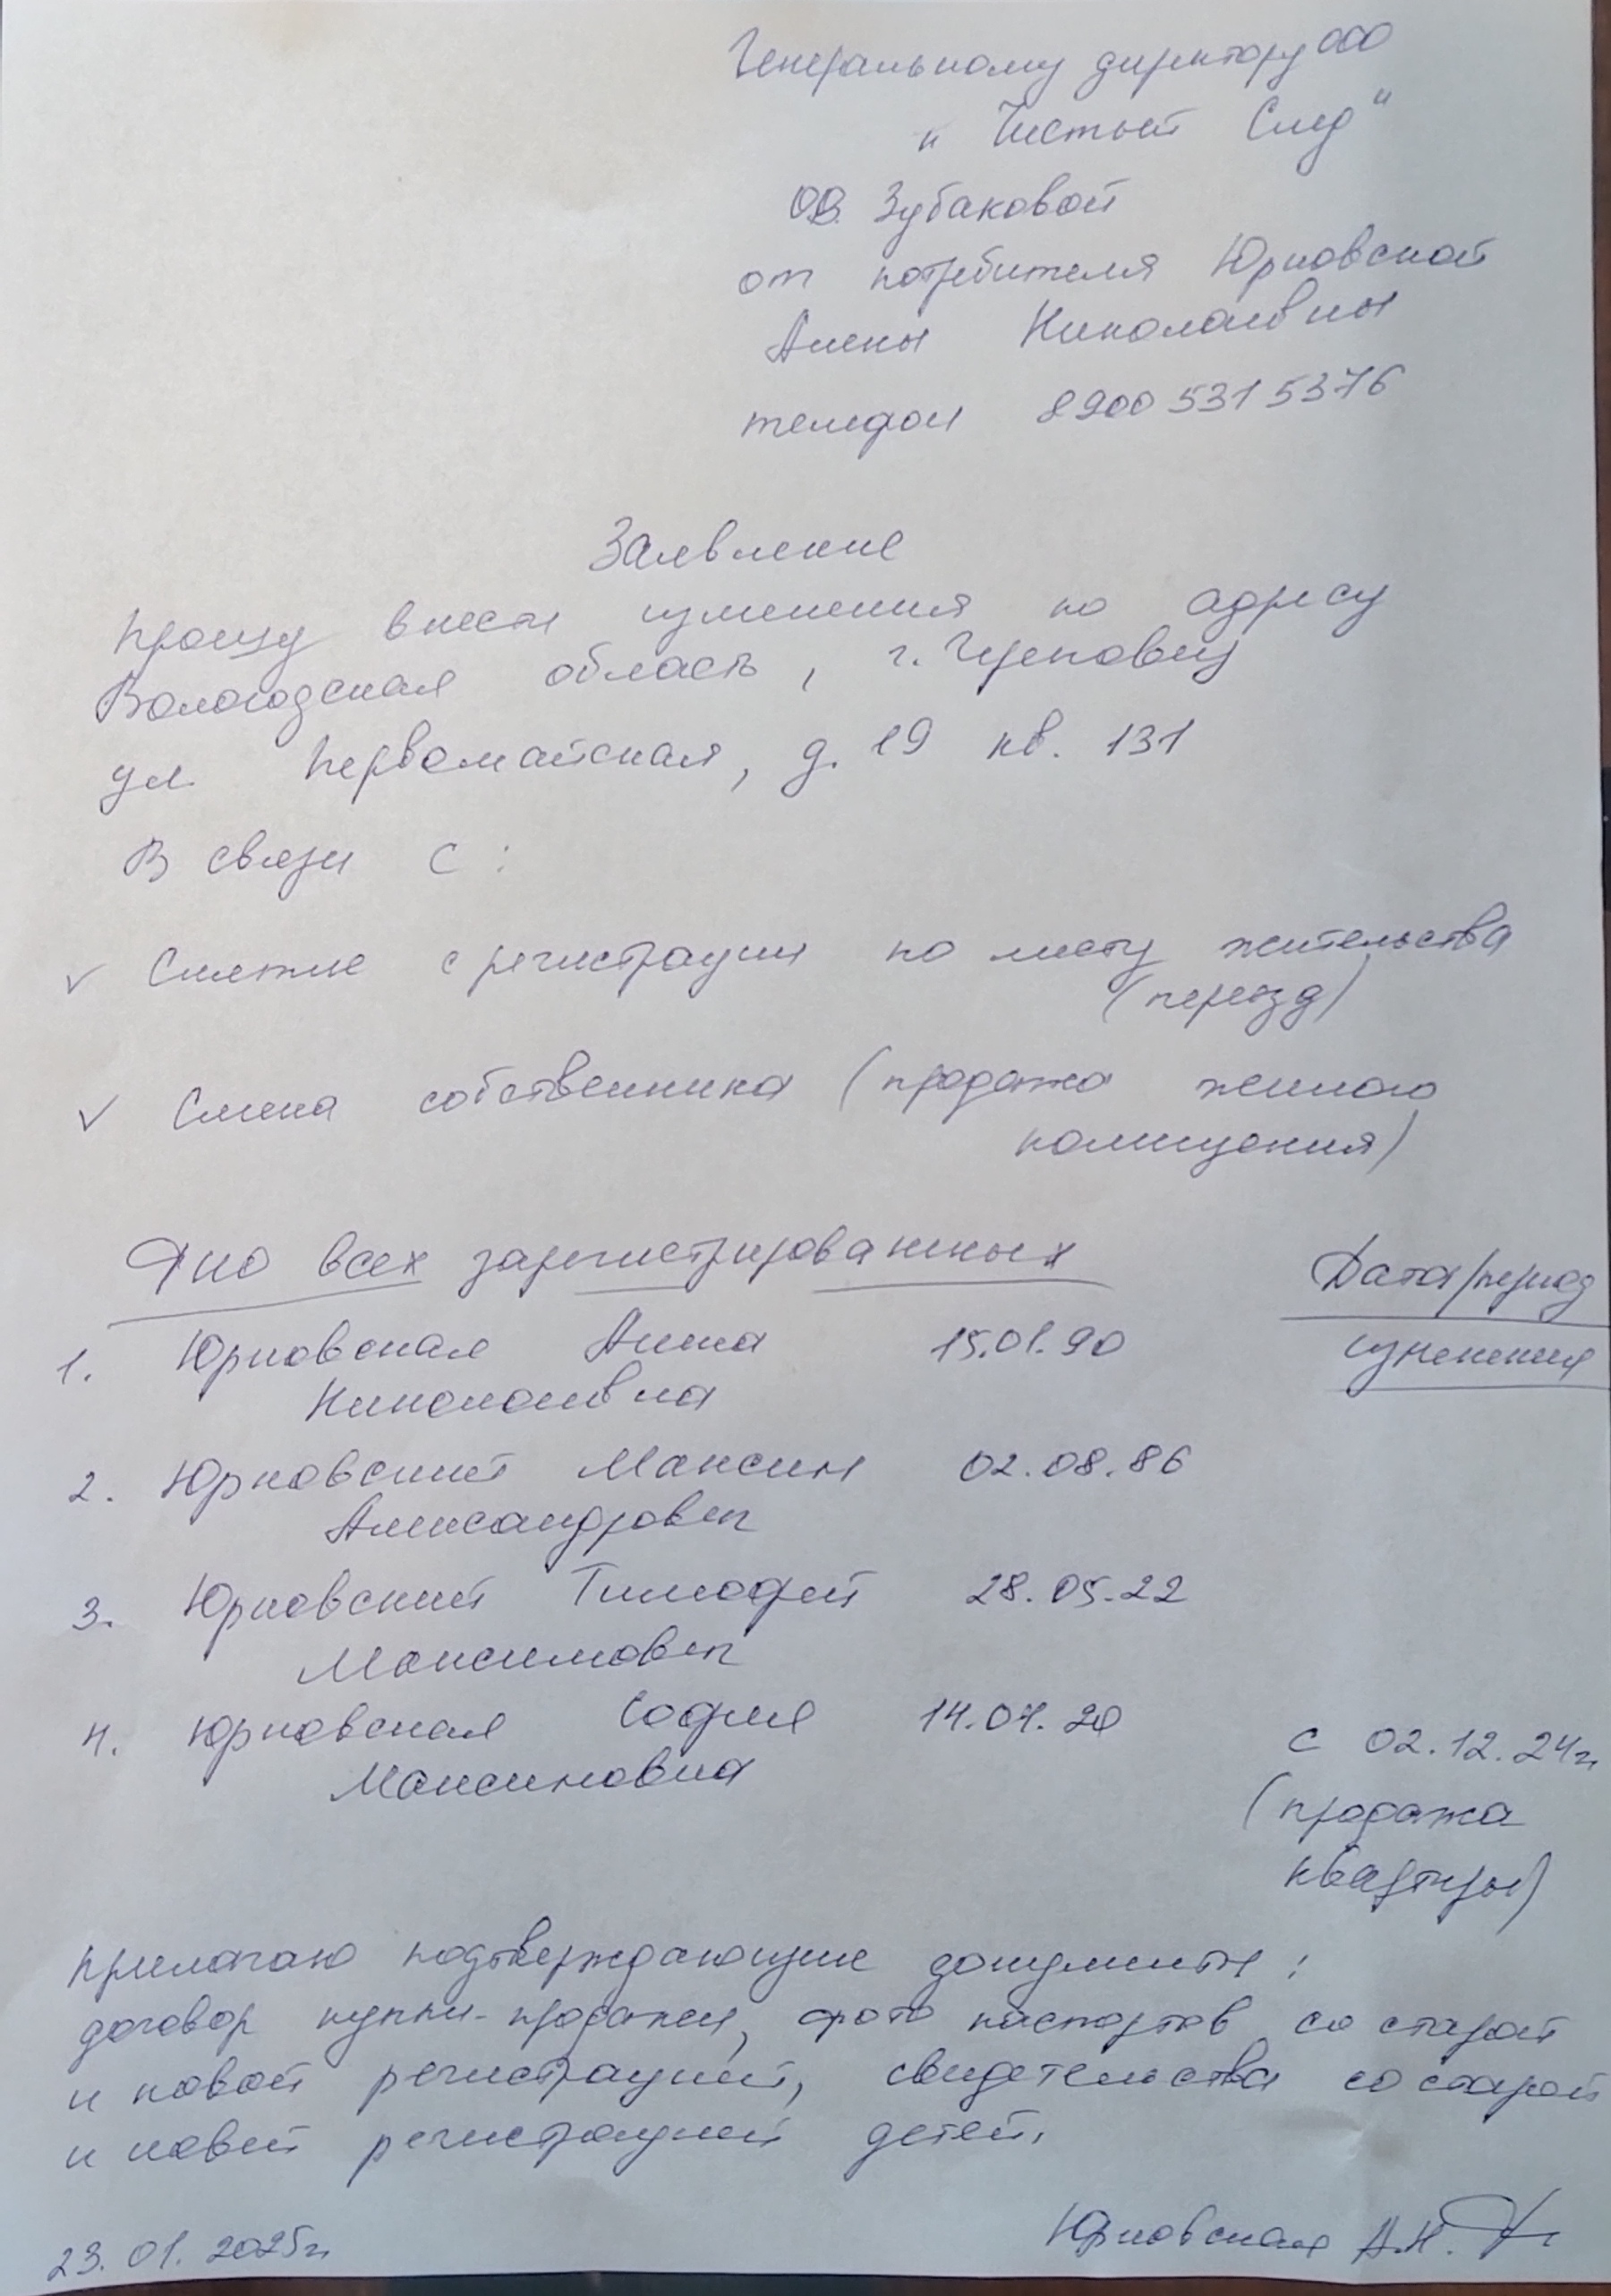 Генеральному директору ООО
"Чистый След"
О.В. Зубаковой
от потребителя Юрковской
Алены Николаевны
телефон 8900 531 5376
Заявление
Прошу внести изменения по адресу
Вологодская область, г. Череповец
ул. Первомайская, д. 19 кв. 131
В связи с:
✓ Снятие с регистрации по месту жительства
(переезд)
✓ Смена собственника (продажа жилого
помещения)
ФИО всех зарегистрированных
Дата/период
изменения
1. Юрковская Алена 15.01.90
Николаевна
2. Юрковский Максим 02.08.86
Александрович
3. Юрковский Тимофей 28.05.22
Максимович
4. Юрковская София 14.07.20
Максимовна
с 02.12.24г.
(продажа
квартиры)
Прилагаю подтверждающие документы:
договор купли-продажи, фото паспортов со старой
и новой регистрацией, свидетельства со старой
и новой регистрацией детей.
23.01.2025г.
Юрковская А.Н.